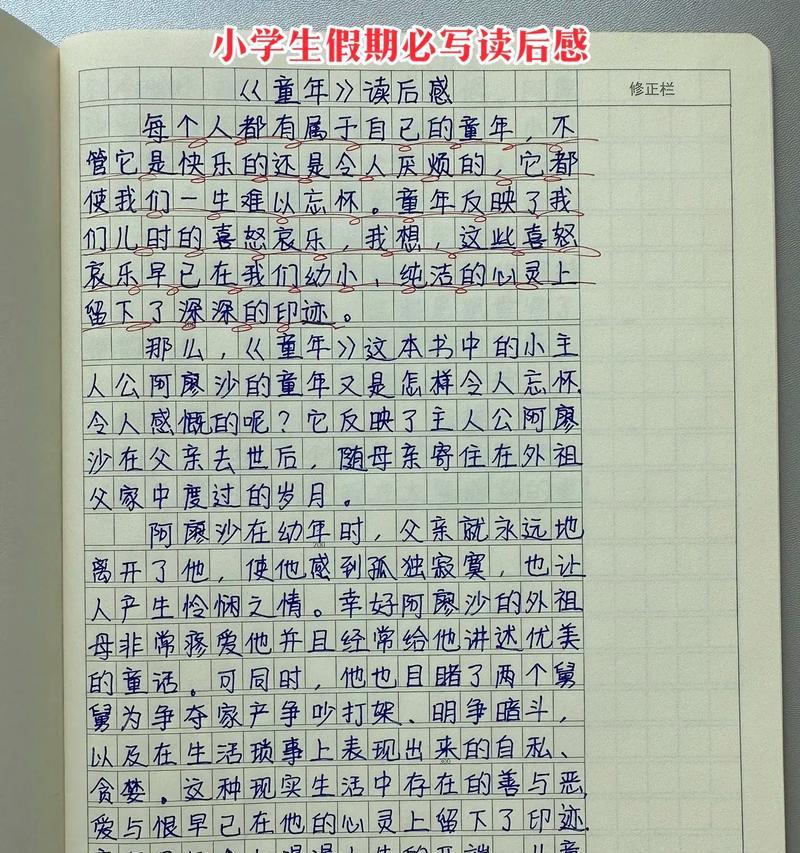 小学生假期必写读后感
修正栏
《童年》读后感
每个人都有属于自己的童年，不
管它是快乐的还是令人厌烦的，它都
使我们一生难以忘怀。童年反映了我
们儿时的喜怒哀乐，我想，这些喜怒
哀乐早已在我们幼小、纯洁的心灵上
留下了深深的印迹。
那么，《童年》这本书中的小主
人公阿廖沙的童年又是怎样令人忘怀
令人感慨的呢？它反映了主人公阿廖
沙在父亲去世后，随母亲寄住在外祖
父家中度过的岁月。
阿廖沙在幼年时，父亲就永远地
离开了他，使他感到孤独寂寞，也让
人产生怜悯之情。幸好阿廖沙的外祖
母非常疼爱他并且经常给他讲述优美
的童话。可同时，他也目睹了两个舅
舅为争夺家产争吵打架、明争暗斗，
以及在生活琐事上表现出来的自私、
贪婪。这种现实生活中存在的善与恶
爱与恨早已在他的心灵上留下了印迹.